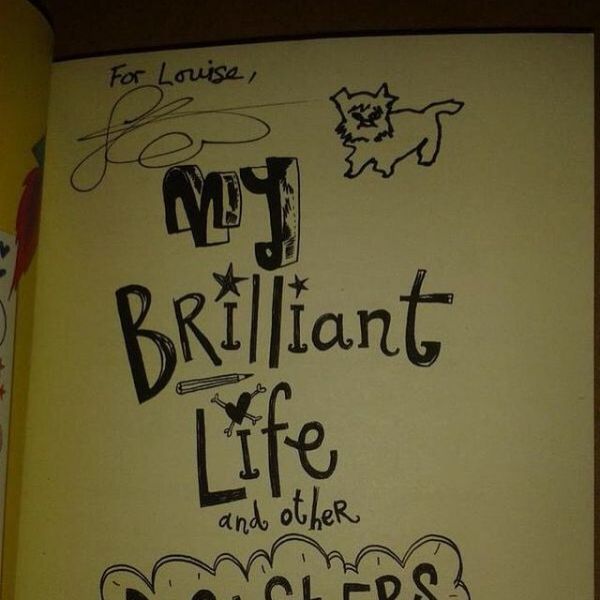 For Louise,
My
BRilliant
Life
and otheR